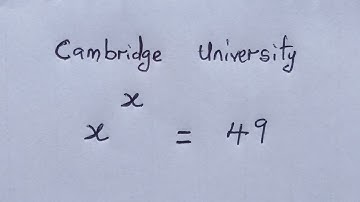 Cambridge University
xˣ = 49